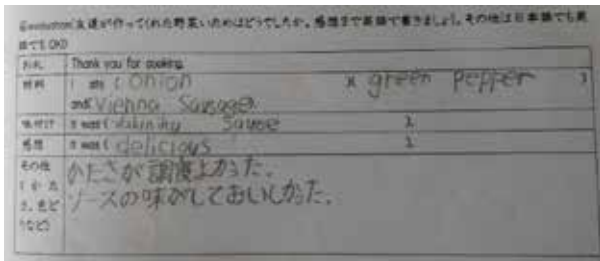 Evaluation(友達が作ってくれた野菜いためはどうでしたか。感想まで英語で書きましょう。その他は日本語でも英語でもOK)
お礼 Thank you for cooking.
材料 I ate ( onion )( green pepper )
and( Vienna Sausage).
味付け It was ( sauce )
感想 It was ( delicious )
その他 かたさが調度よかった。
(かたさ、色どりなど) ソースの味がしておいしかった。